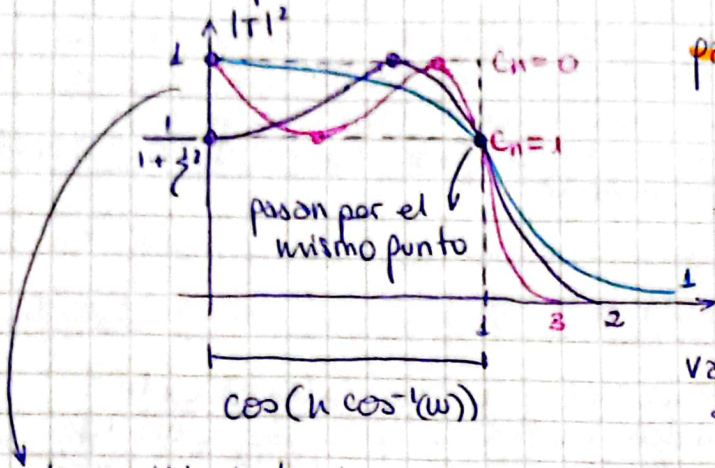 |T|²
1
Cn=0
1
1+ξ²
Cn=1
pasan por el
mismo punto
1
1
3
2
cos(n cos⁻¹(w))